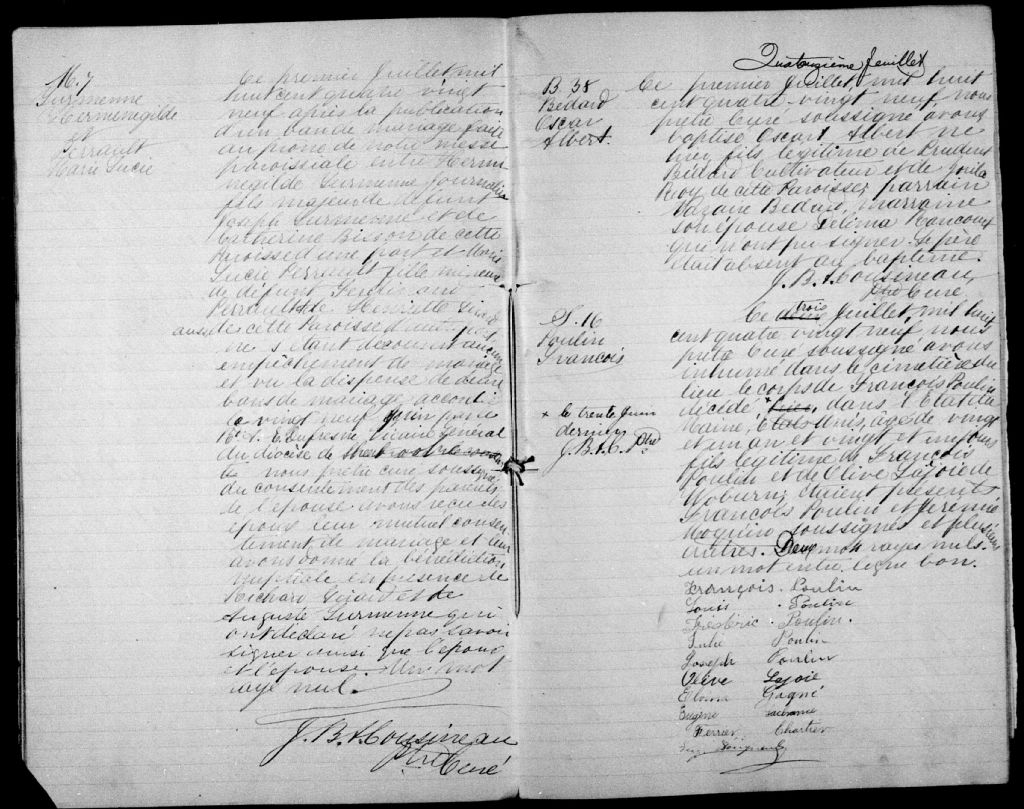 M. 7
Surmenne
Hermenegilde
et
Perrault
Marie Lucie
Ce premier Juillet, mil
huit cent quatre vingt
neuf après la publication
d'un bande mariage faite
au prone de notre messe
paroissiale entre Herme
negilde Surmenne Journalier
fils majeur de défunt
Joseph Surmenne et de
Catherine Bisson de cette
Paroisse d'une part et Marie
Lucie Perrault fille mineure
de défunt
Perrault et de Henriette
aussi de cette Paroisse d'autre part
ne s'étant découvert aucun
empêchement de mariage
et vu la dispense de deux
bans de mariage accordée
le vingt neuf Juin par
E. Dufresne, Vicaire général
du diocèse de
nous prêtre curé soussigné
du consentement des parents
de l'épouse avons reçu des
époux leur mutuel consen
tement de mariage et leur
avons donné la bénédiction
nuptiale en présence de
Richard et de
Auguste Surmenne qui
ont déclaré ne pas savoir
signer ainsi que l'époux
et l'épouse. Un mot
rayé nul.
J. B. A. Cousineau
Ptre Curé
Quatorzième feuillet
B. 38
Bedard
Oscar
Albert.
Ce premier Juillet, mil huit
cent quatre-vingt neuf, nous
prêtre Curé soussigné avons
baptisé Oscar Albert né
hier, fils légitime de Prudent
Bedard Cultivateur et de
Roy de cette Paroisse, parrain
Nazaire Bedard, marraine
son épouse Zelima Rancourt
qui n'ont pu signer. Le père
était absent au baptême.
J. B. A. Cousineau,
Ptre Curé,
S. 16
Poulin
François
Ce trois Juillet, mil huit
cent quatre vingt neuf nous
prêtre Curé soussigné avons
inhumé dans le cimetière du
lieu le corps de François Poulin
décédé + dans l'Etat du
Maine, Etats Unis, âgé de vingt
et un an et vingt et un jours
fils légitime de François
Poulin et de Olive Lajoie de
Woburn; étaient présents
François Poulin et Jérémie
soussignés et plusieurs
autres. Deux mots rayés nuls.
un mot entre ligne bon.
+ le trente Juin
dernier
J. B. A. C. Ptre
François Poulin
Louis Poulin
Frederic Poulin.
Julie Poulin
Joseph Poulin
Olive Lajoie
Gagné
Eugène
Ferrier Chartier